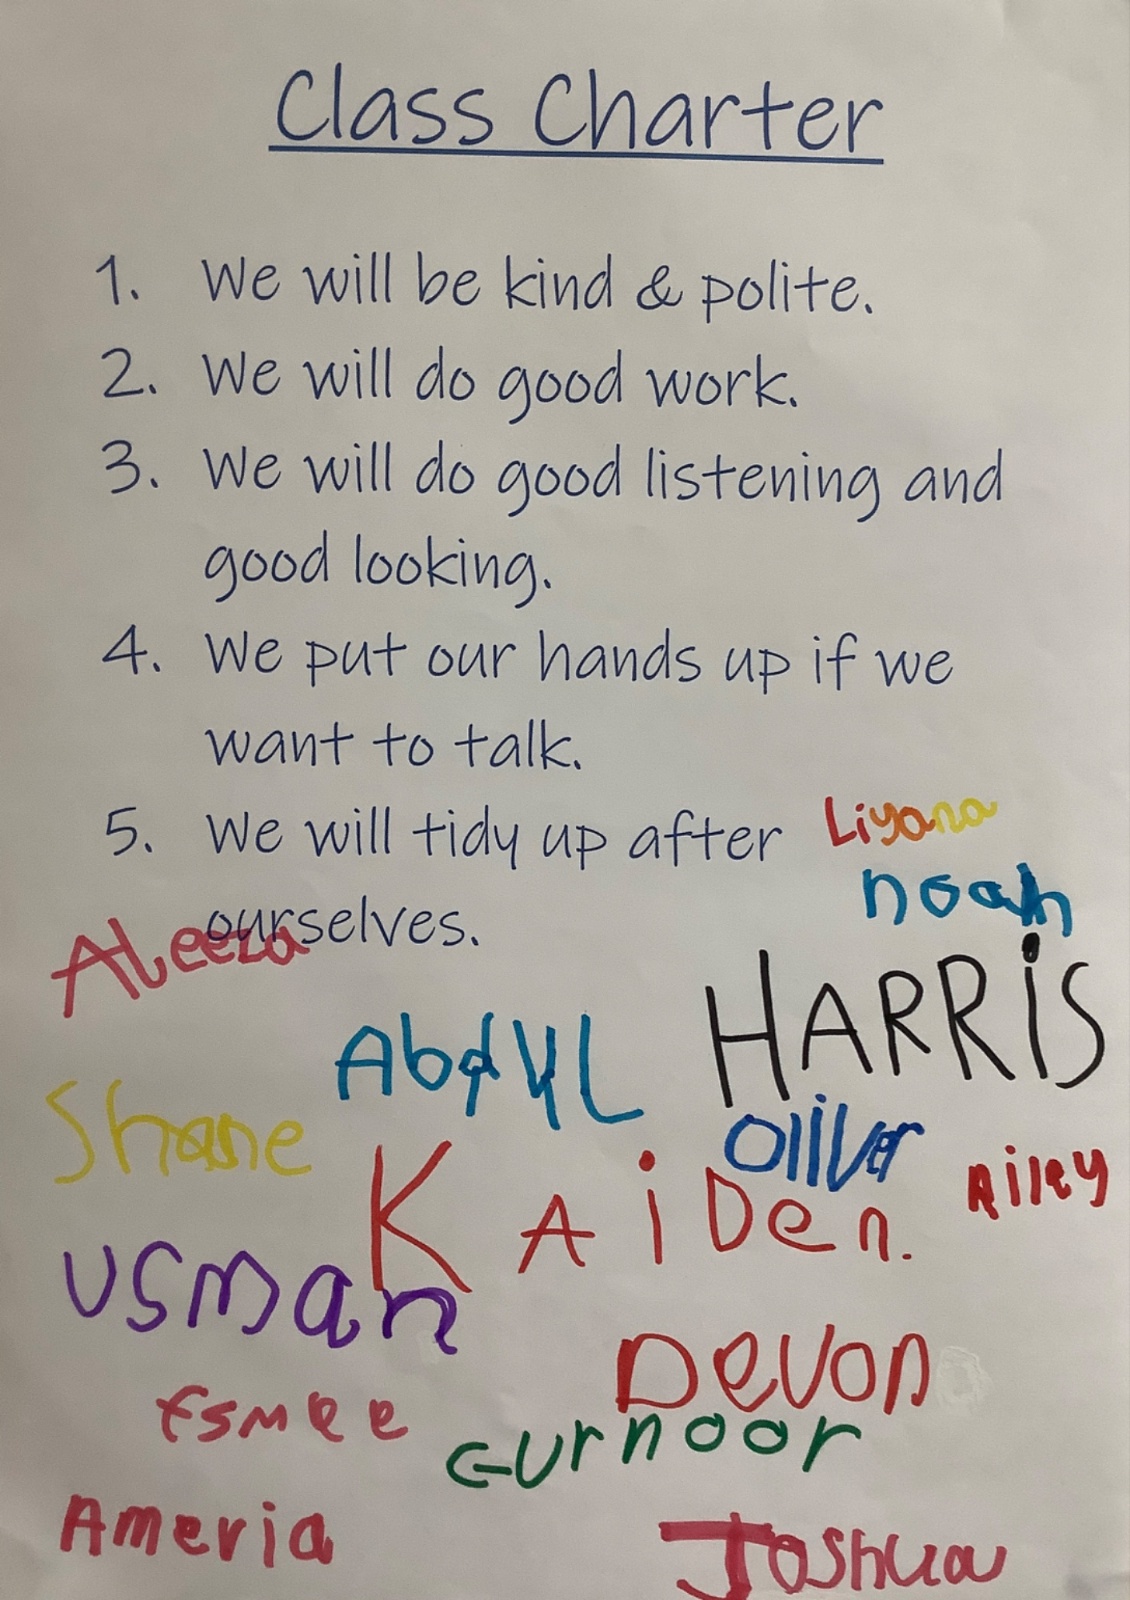 Class Charter
1. We will be kind & polite.
2. We will do good work.
3. We will do good listening and
good looking.
4. We put our hands up if we
want to talk.
5. We will tidy up after
ourselves.
Liyana
noah
Aleeza
HARRiS
AbdUL
Shane
Oliver
KAiDen.
Riley
USman
DevoN
Esmee
Gurnoor
Ameria
JoShua